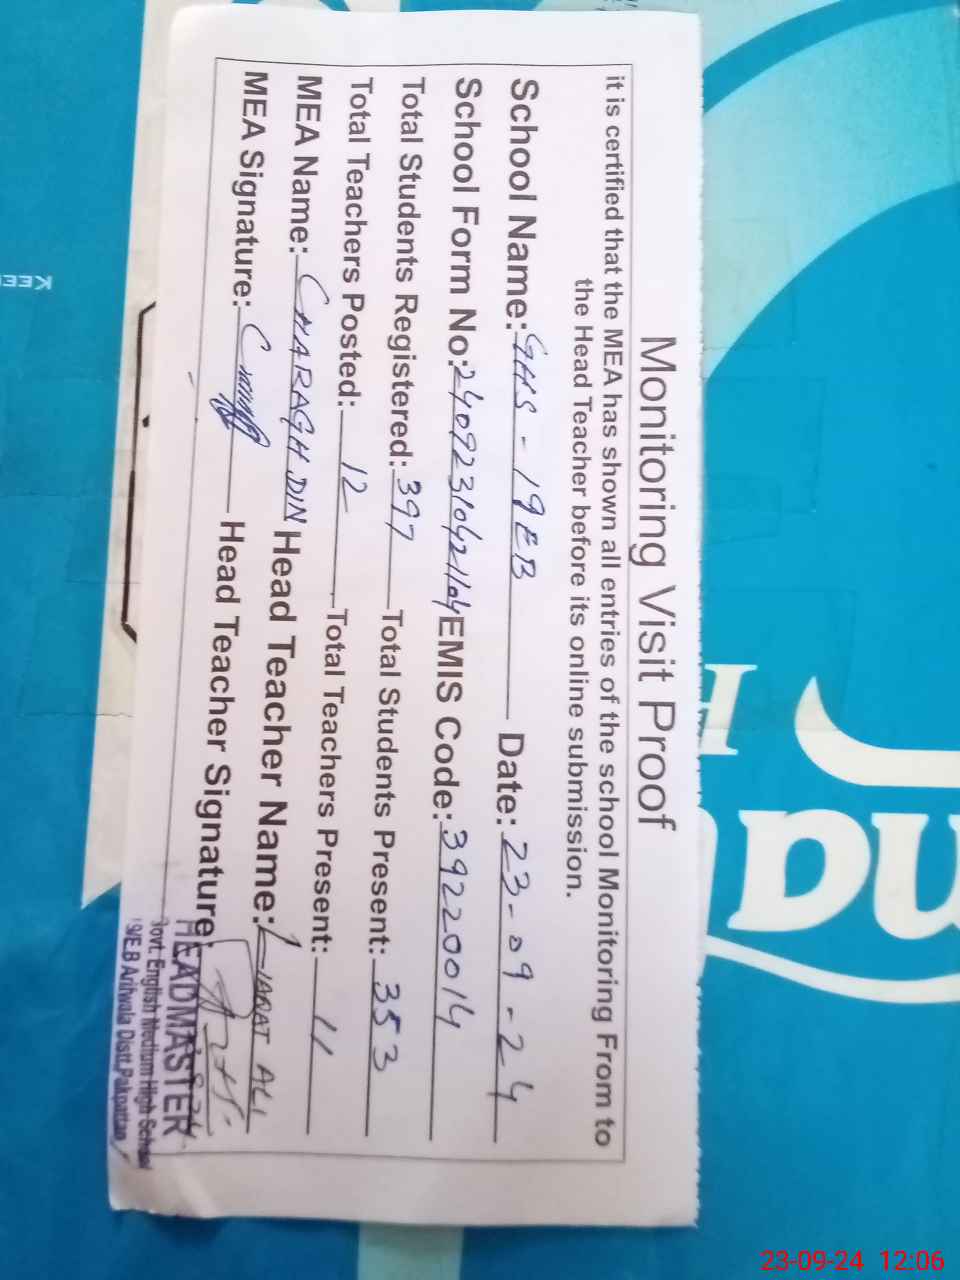 Monitoring Visit Proof
it is certified that the MEA has shown all entries of the school Monitoring From to
the Head Teacher before its online submission.
School Name: GHS - 19EB Date: 23-09-24
School Form No: 24092310421104 EMIS Code: 39220014
Total Students Registered: 397 Total Students Present: 353
Total Teachers Posted: 12 Total Teachers Present: 11
MEA Name: CHARAGH DIN Head Teacher Name: LIAQAT ALI
MEA Signature: Head Teacher Signature:
HEADMASTER
Govt. English Medium High School
19/E.B Arifwala Distt.Pakpattan
KEEP
23-09-24 12:06